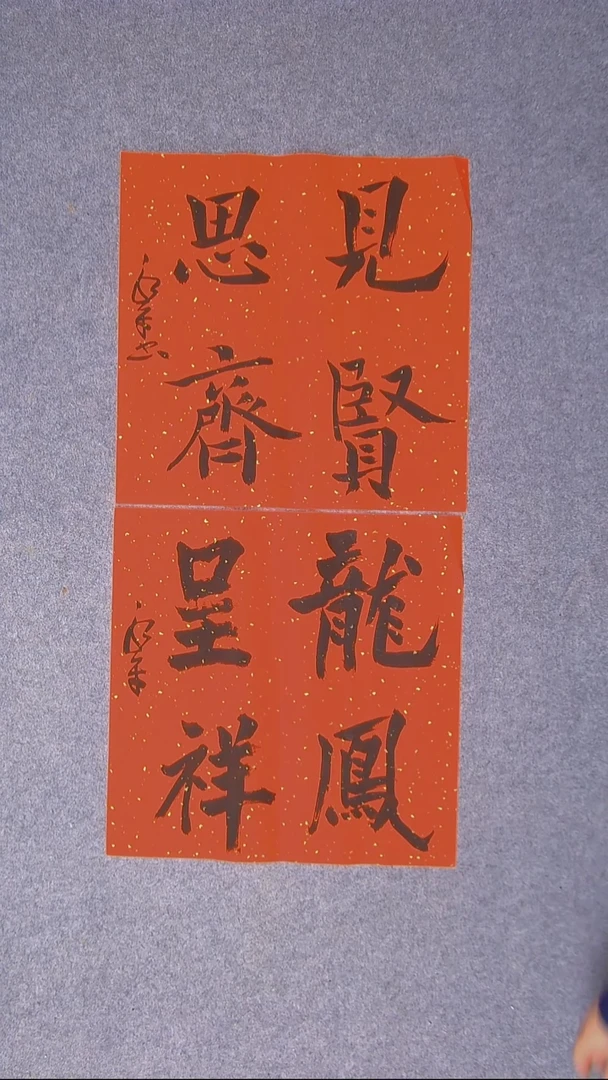 見賢
思齊
龍鳳
呈祥